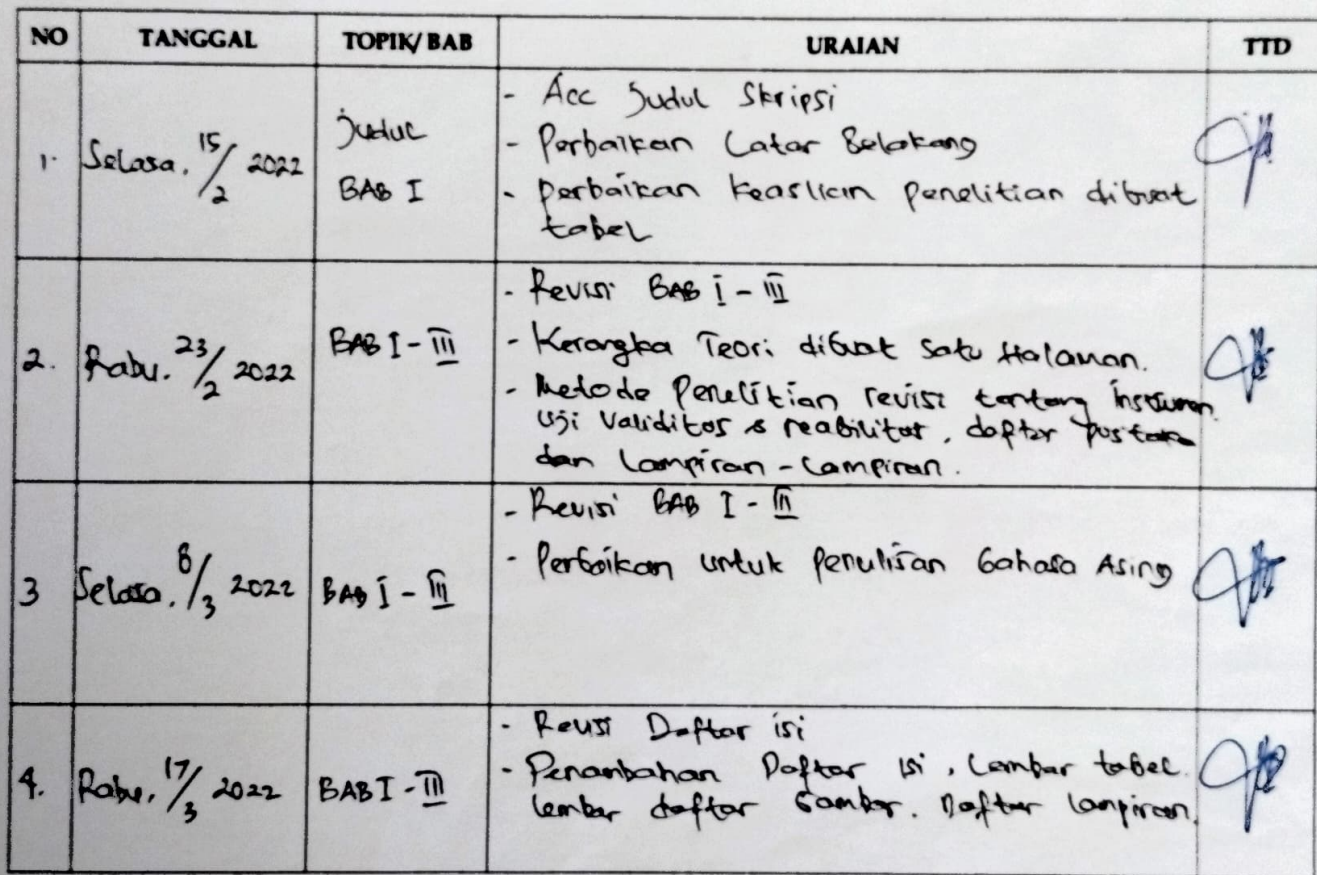 NO TANGGAL TOPIK/BAB URAIAN TTD
1. Selasa, 15/2 2022
Judul
BAB I
- Acc Judul Skripsi
- Perbaikan Latar Belakang
- Perbaikan Keaslian penelitian dibuat
tabel
2. Rabu, 23/2 2022
BAB I - III
- Revisi BAB I - III
- Kerangka Teori dibuat Satu Halaman.
- Metode Penelitian revisi tentang instrumen
Uji Validitas & reabilitas, daftar Pustaka
dan Lampiran - Lampiran.
3 Selasa, 8/3 2022
BAB I - III
- Revisi BAB I - III
- Perbaikan untuk Penulisan bahasa Asing
4. Rabu, 17/3 2022
BAB I - III
- Revisi Daftar isi
- Penambahan Daftar isi, Lembar tabel.
lembar daftar Gambar. Daftar lampiran.